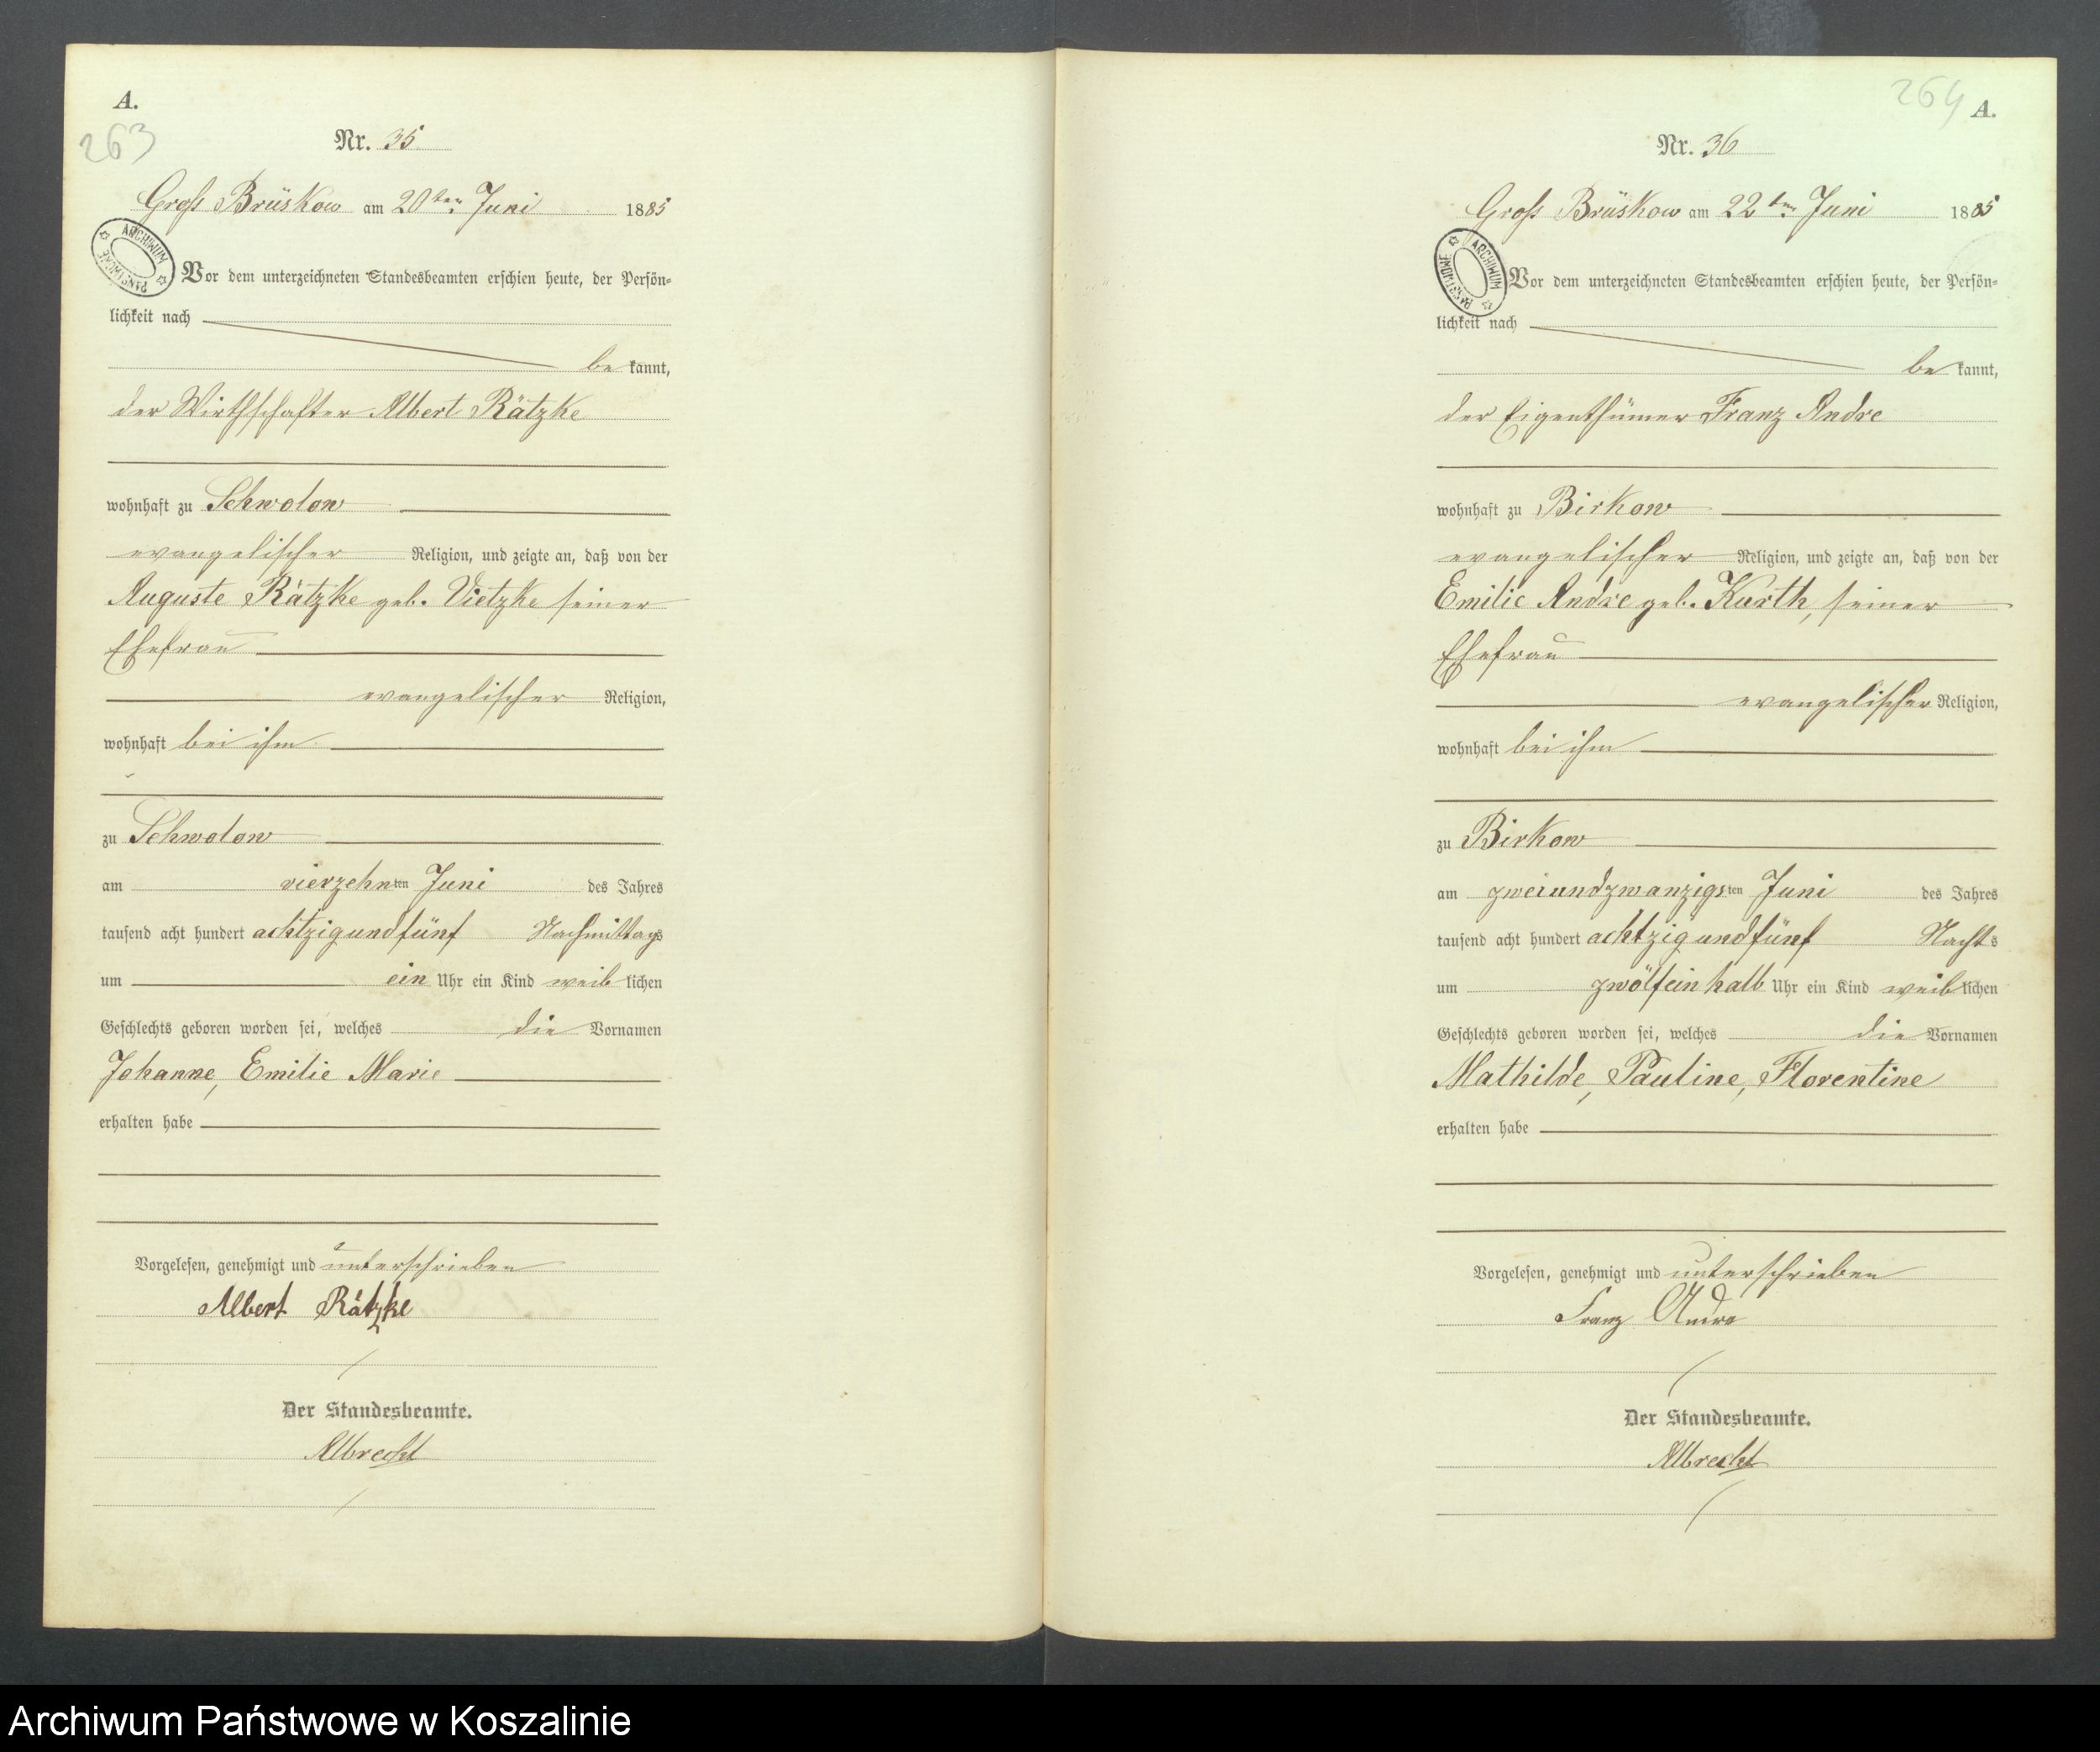 A.
263
Nr. 35
Groß Brüskow am 20ten Juni 1885
ARCHIWUM PAŃSTWOWE
Vor dem unterzeichneten Standesbeamten erschien heute, der Persön-
lichkeit nach
bekannt,
der Wirthschafter Albert Rätzke
wohnhaft zu Schwolow
evangelischer Religion, und zeigte an, daß von der
Auguste Rätzke geb. Vietzke seiner
Ehefrau
evangelischer Religion,
wohnhaft bei ihm
zu Schwolow
am vierzehnten Juni des Jahres
tausend acht hundert achtzigundfünf Nachmittags
um ein Uhr ein Kind weiblichen
Geschlechts geboren worden sei, welches die Vornamen
Johanne, Emilie Marie
erhalten habe
Vorgelesen, genehmigt und unterschrieben
Albert Rätzke
Der Standesbeamte.
Albrecht
264
A.
Nr. 36
Groß Brüskow am 22ten Juni 1885
ARCHIWUM PAŃSTWOWE
Vor dem unterzeichneten Standesbeamten erschien heute, der Persön-
lichkeit nach
bekannt,
der Eigenthümer Franz Andre
wohnhaft zu Birkow
evangelischer Religion, und zeigte an, daß von der
Emilie Andre geb. Kurth, seiner
Ehefrau
evangelischer Religion,
wohnhaft bei ihm
zu Birkow
am zweiundzwanzigsten Juni des Jahres
tausend acht hundert achtzigundfünf Nachts
um zwölfeinhalb Uhr ein Kind weiblichen
Geschlechts geboren worden sei, welches die Vornamen
Mathilde, Pauline, Florentine
erhalten habe
Vorgelesen, genehmigt und unterschrieben
Franz Andre
Der Standesbeamte.
Albrecht
Archiwum Państwowe w Koszalinie